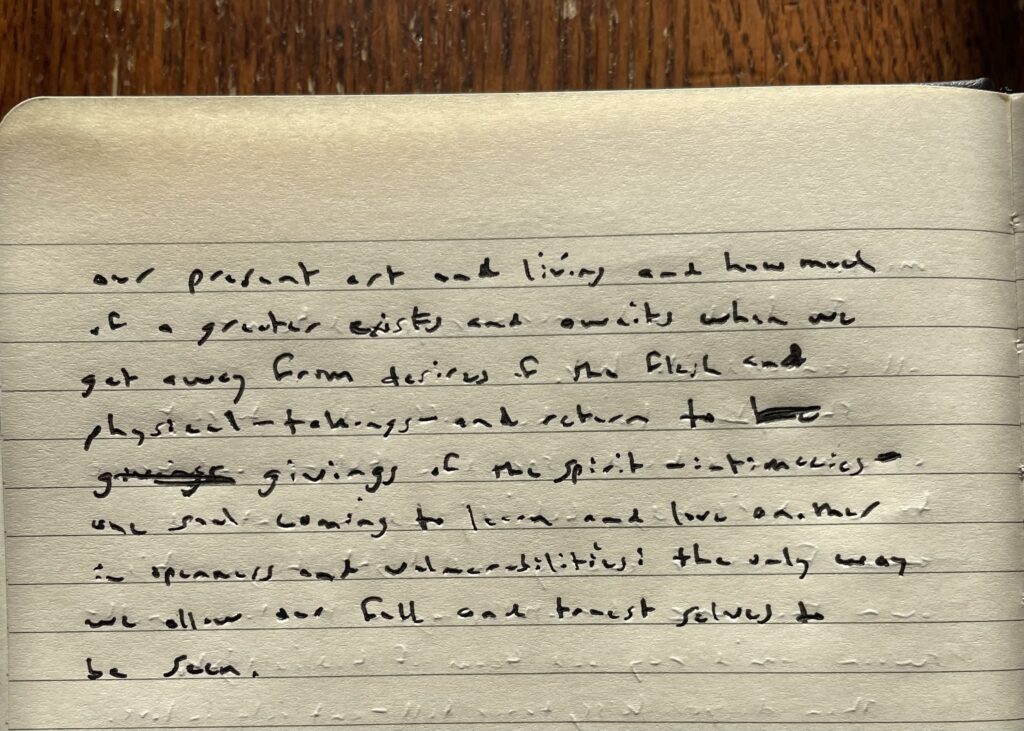 our present art and living and how much
of a greater exists and awaits when we
get away from desires of the flesh and
physical-takings- and return to
givings of the spirit -intimacies-
one soul coming to learn and love another
in openness and vulnerabilities: the only way
we allow our full and truest selves to
be seen.